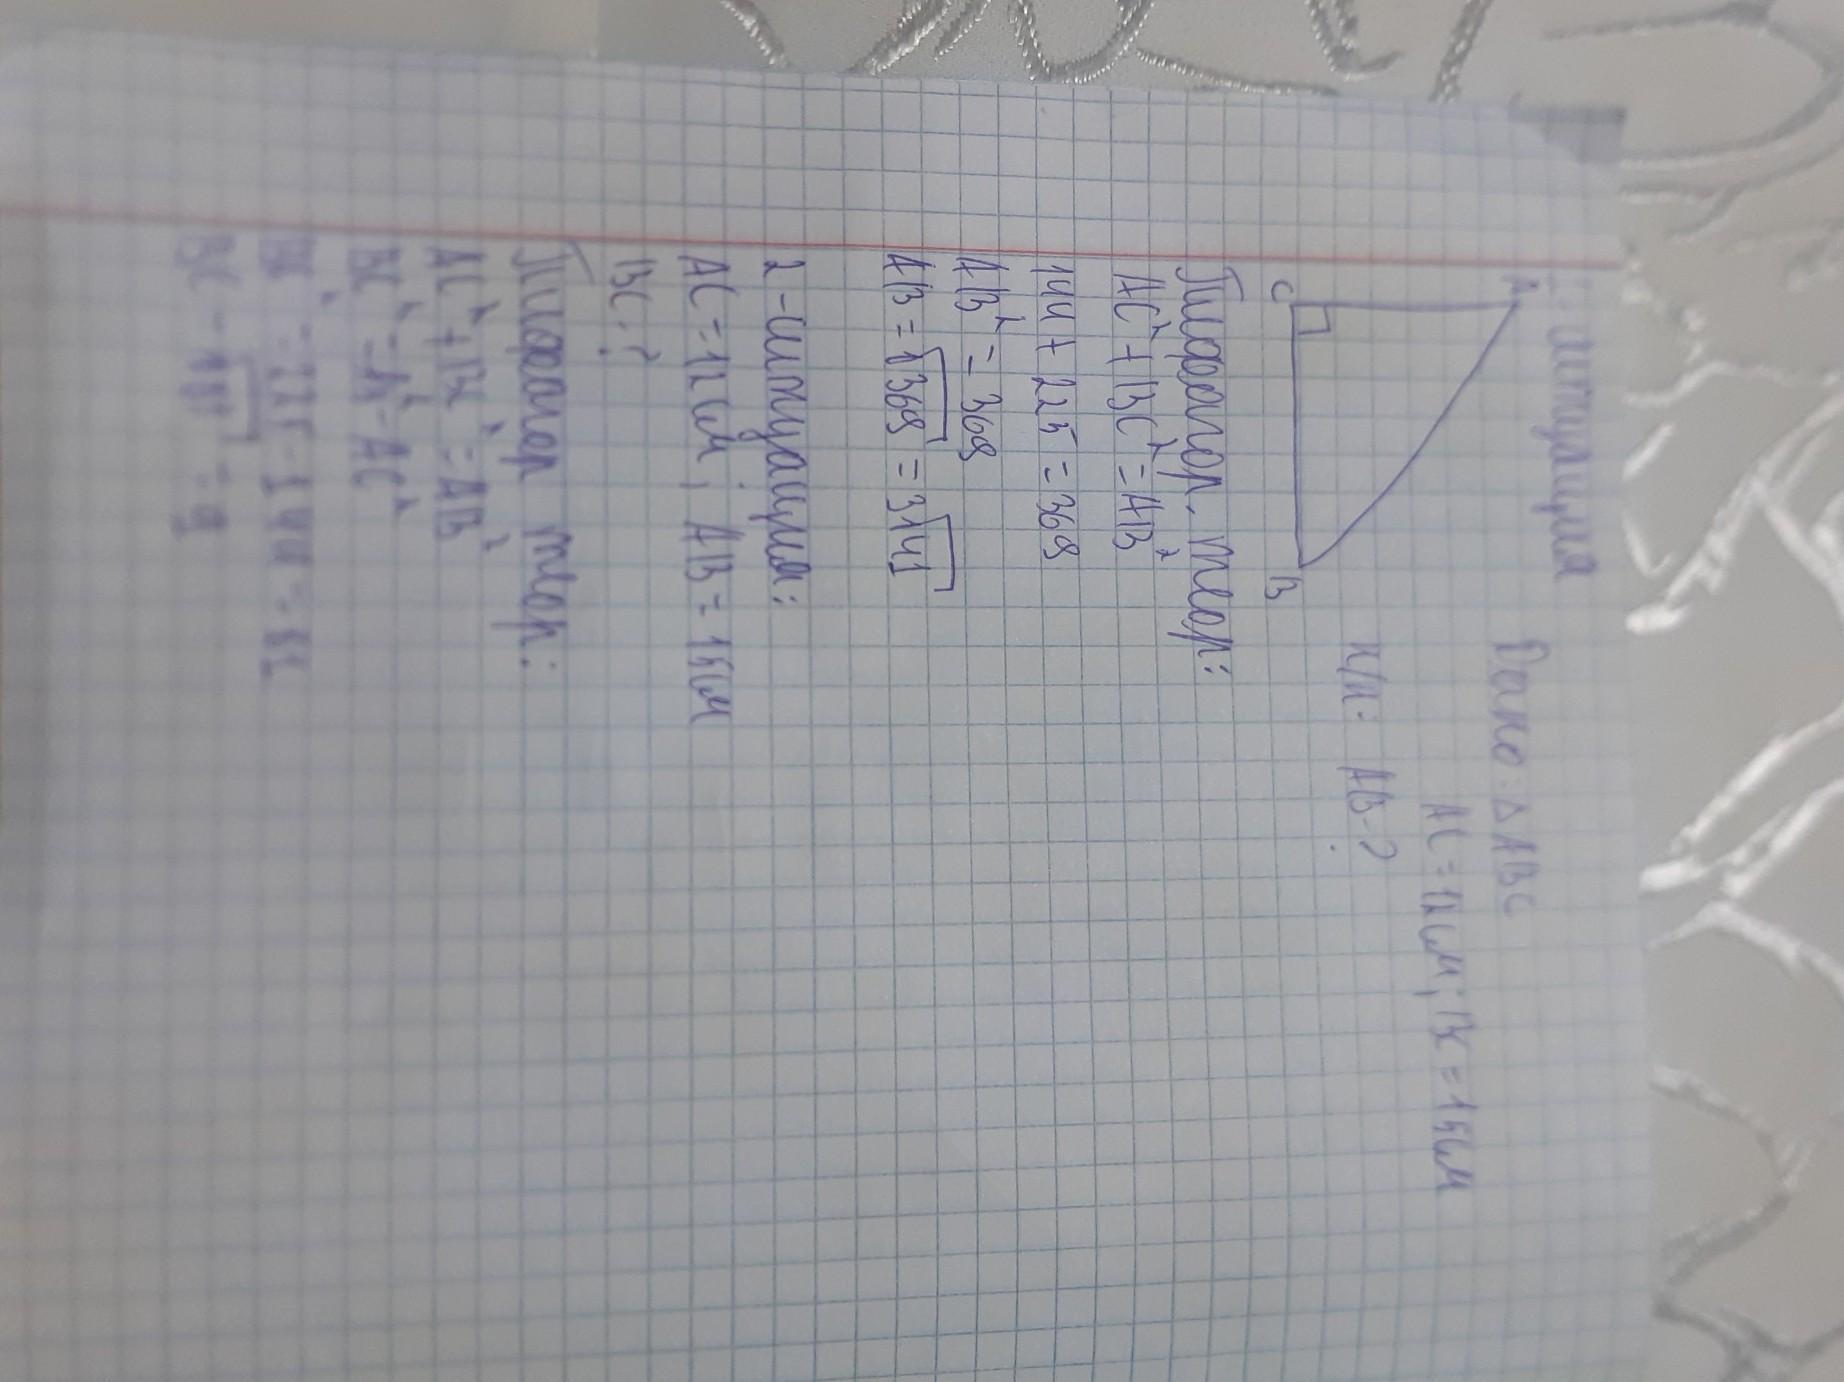 1-ситуация
Дано: △ABC
AC = 12 см; BC = 15 см
Н/П: AB - ?
A
C
B
Пифагор. теор:
AC² + BC² = AB²
144 + 225 = 369
AB² = 369
AB = √369 = 3√41
2-ситуация:
AC = 12 см; AB = 15 см
BC - ?
Пифагор теор:
AC² + BC² = AB²
BC² = AB² - AC²
BC² = 225 - 144 = 81
BC = √81 = 9